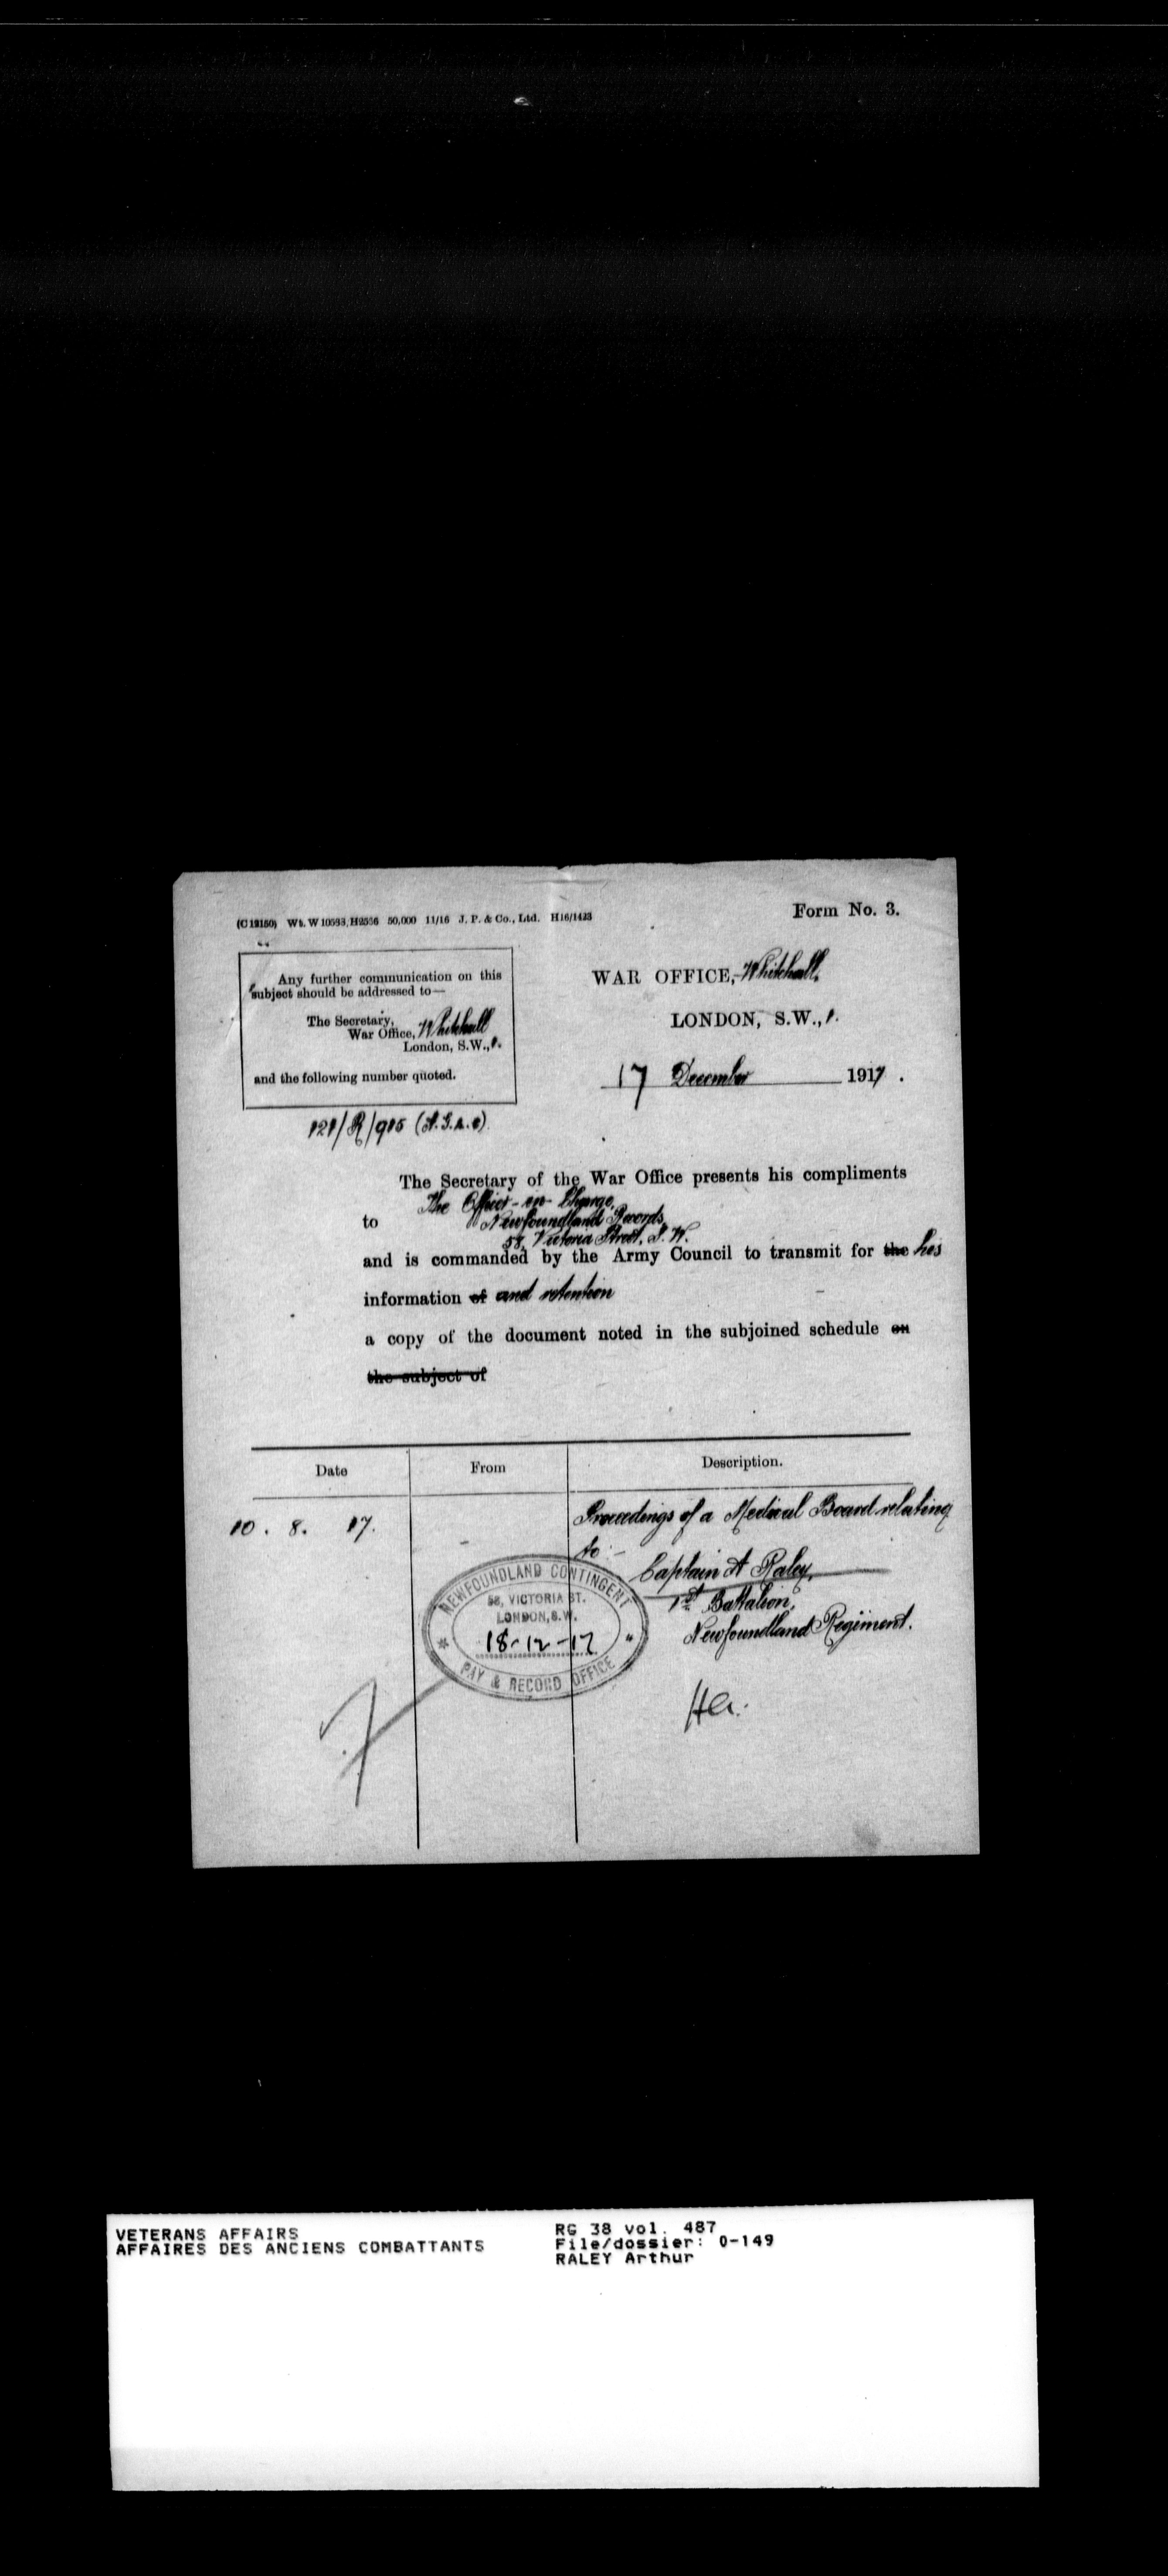 (C 12150) Wt. W 10593, H2536 50,000 11/16 J. P. & Co., Ltd. H16/1423
Form No. 3.
Any further communication on this
subject should be addressed to—
The Secretary,
War Office, Whitehall
London, S.W.,1.
and the following number quoted.
WAR OFFICE, Whitehall,
LONDON, S.W.,1.
17 December 1917.
121/R/915
The Secretary of the War Office presents his compliments
The Officer-in-Charge,
to Newfoundland Records,
58, Victoria Street, S.W.
and is commanded by the Army Council to transmit for the his
information of and retention
a copy of the document noted in the subjoined schedule on
the subject of
Date From Description.
10. 8. 17. Proceedings of a Medical Board relating
to :-
Captain A Raley,
1st Battalion,
Newfoundland Regiment.
NEWFOUNDLAND CONTINGENT
58, VICTORIA ST.
LONDON, S.W.
18-12-17
PAY & RECORD OFFICE
VETERANS AFFAIRS
AFFAIRES DES ANCIENS COMBATTANTS
RG 38 vol. 487
File/dossier: 0-149
RALEY Arthur